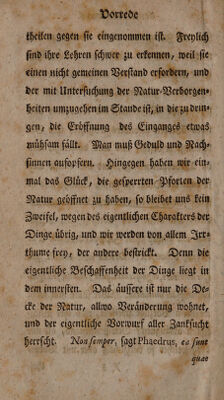 Vorrede
theilen gegen sie eingenommen ist. Freylich
sind ihre Lehren schwer zu erkennen, weil sie
einen nicht gemeinen Verstand erfordern, und
der mit Untersuchung der Natur-Verborgen-
heiten umzugehen im Stande ist, in die zu drin-
gen, die Eröffnung des Einganges etwas
mühsam fällt. Man muß Geduld und Nach-
sinnen aufopfern. Hingegen haben wir ein-
mal das Glück, die gesperrten Pforten der
Natur geöffnet zu haben, so bleibet uns kein
Zweifel, wegen des eigentlichen Charakters der
Dinge übrig, und wir werden von allem Irr-
thume frey, der andere bestrickt. Denn die
eigentliche Beschaffenheit der Dinge liegt in
dem innersten. Das äussere ist nur die De-
cke der Natur, allwo Veränderung wohnet,
und der eigentliche Vorwurf aller Zanksucht
herrscht. Non semper, sagt Phaedrus, ea sunt
quae